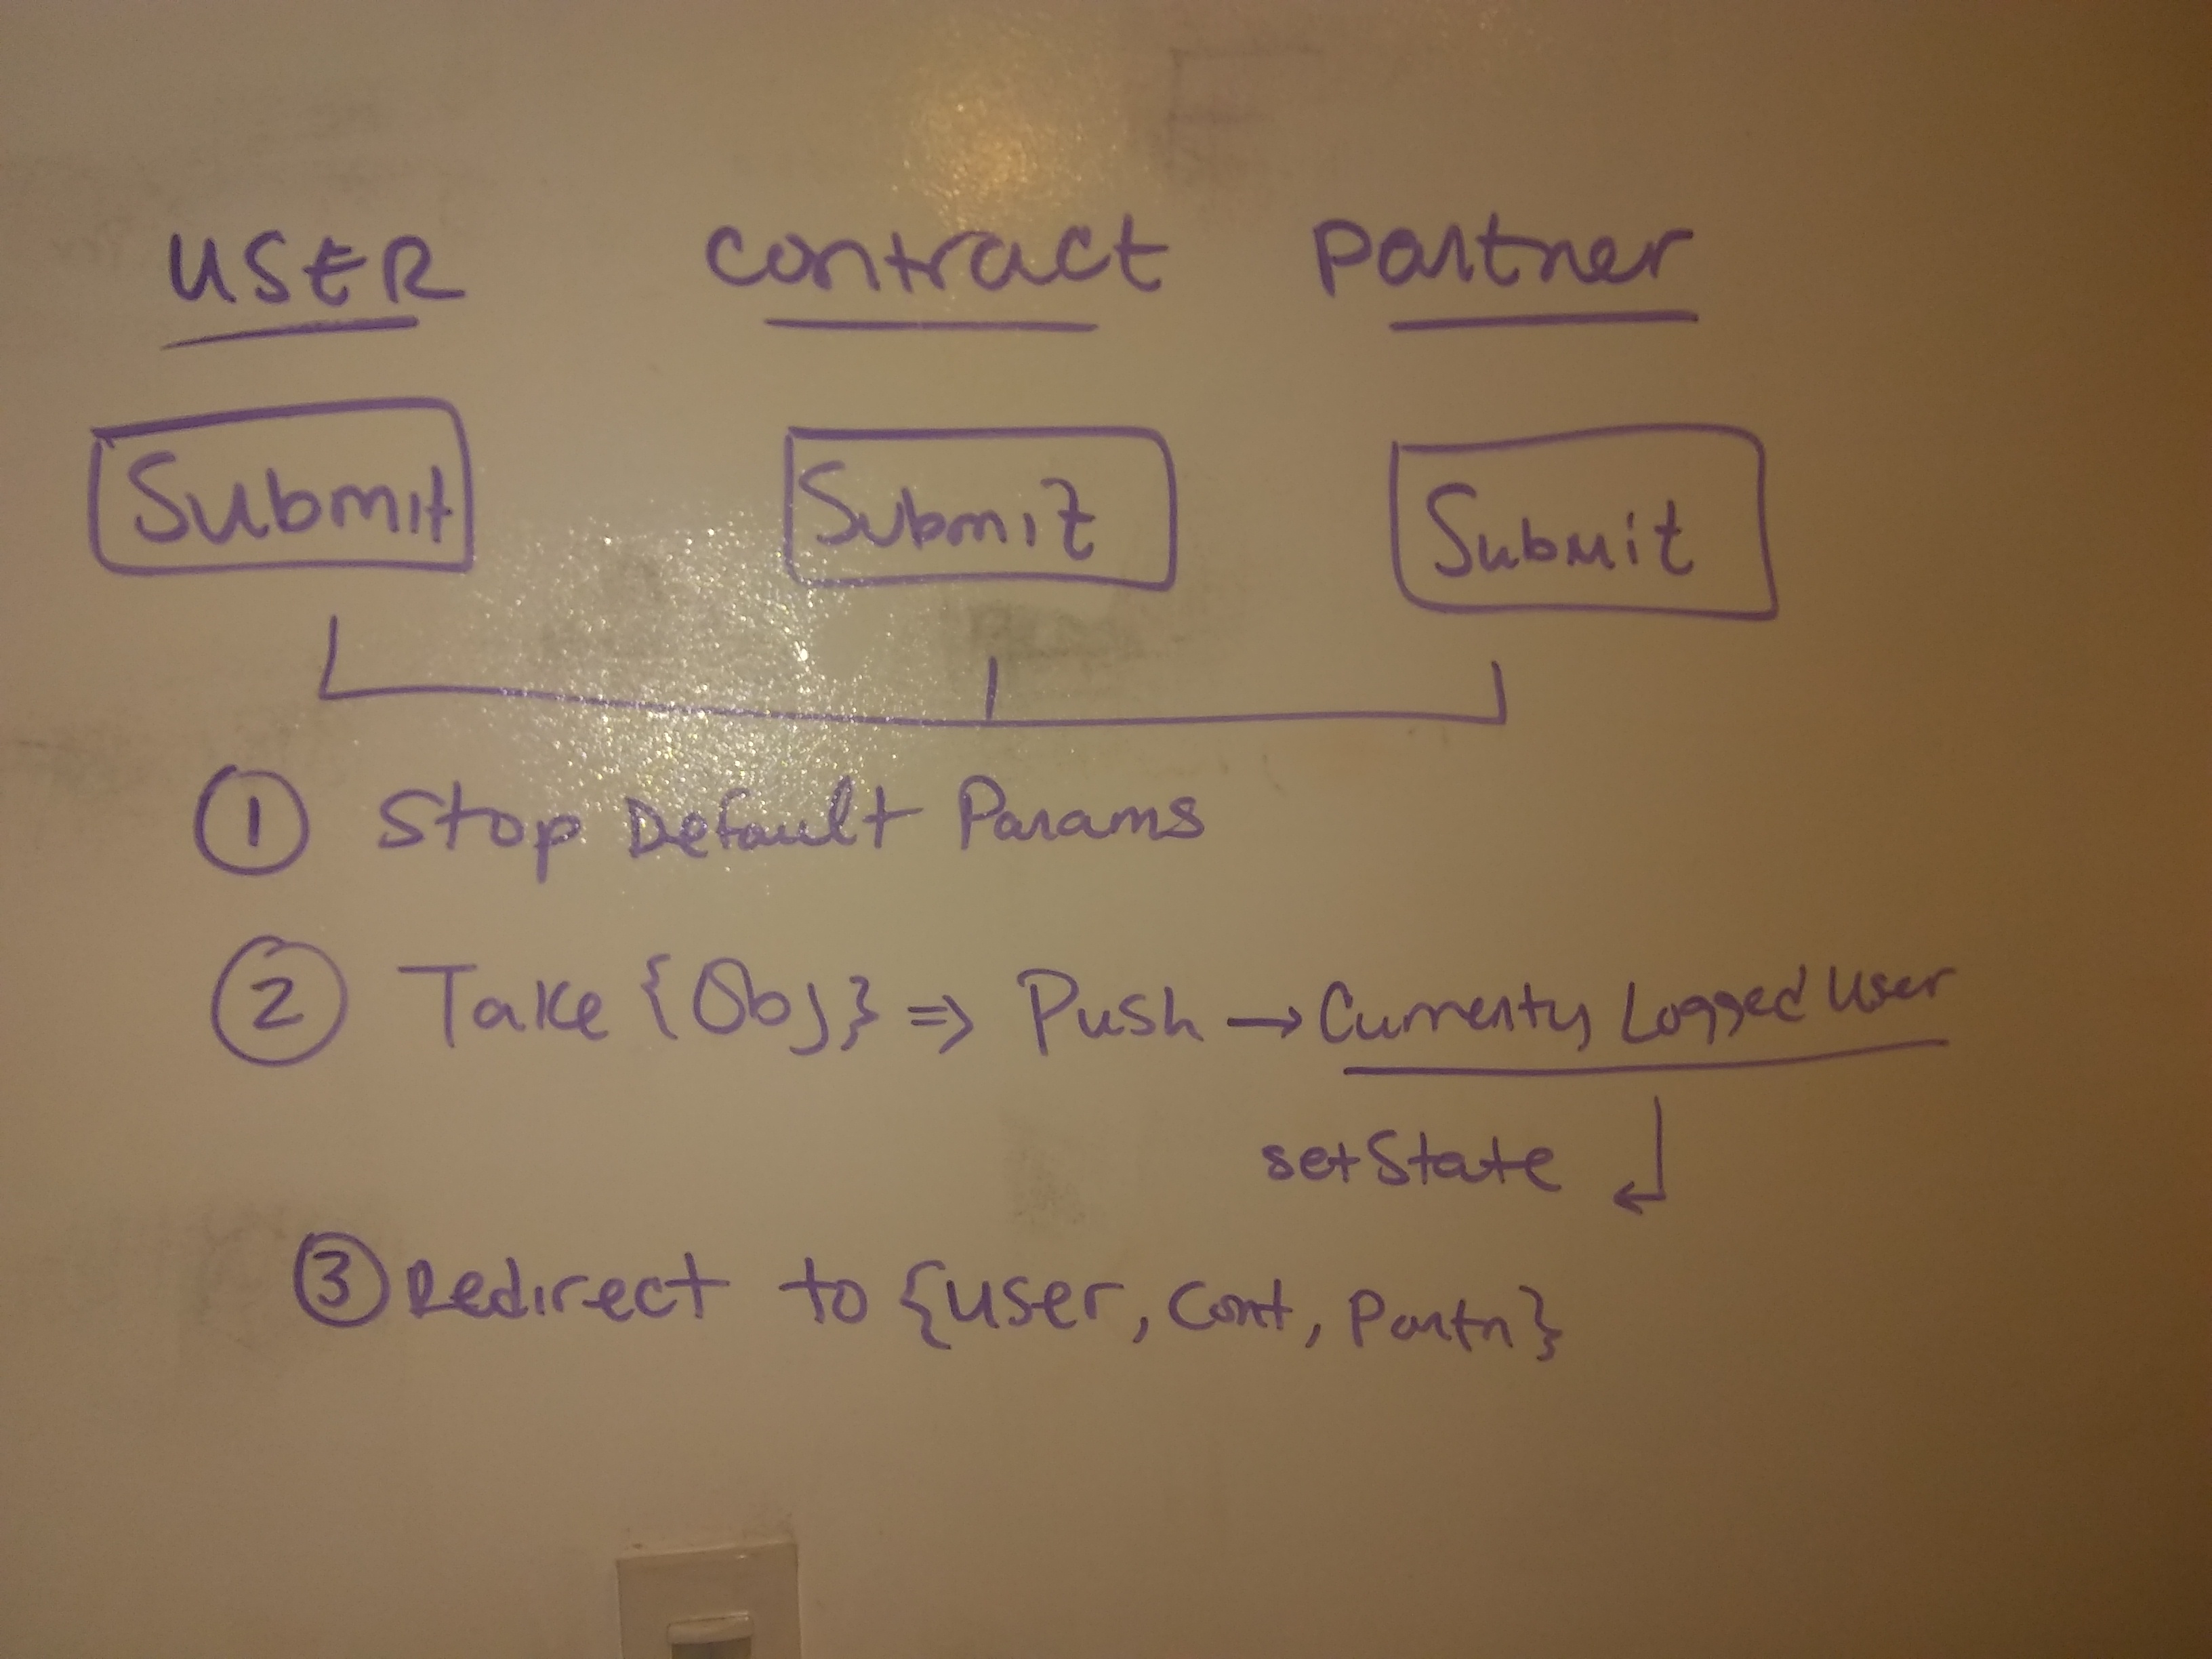 USER contract Partner
Submit Submit Submit
① Stop Default Params
② Take {Obj} => Push → Currently Logged User
setState
③ Redirect to {user, Cont, Partn}